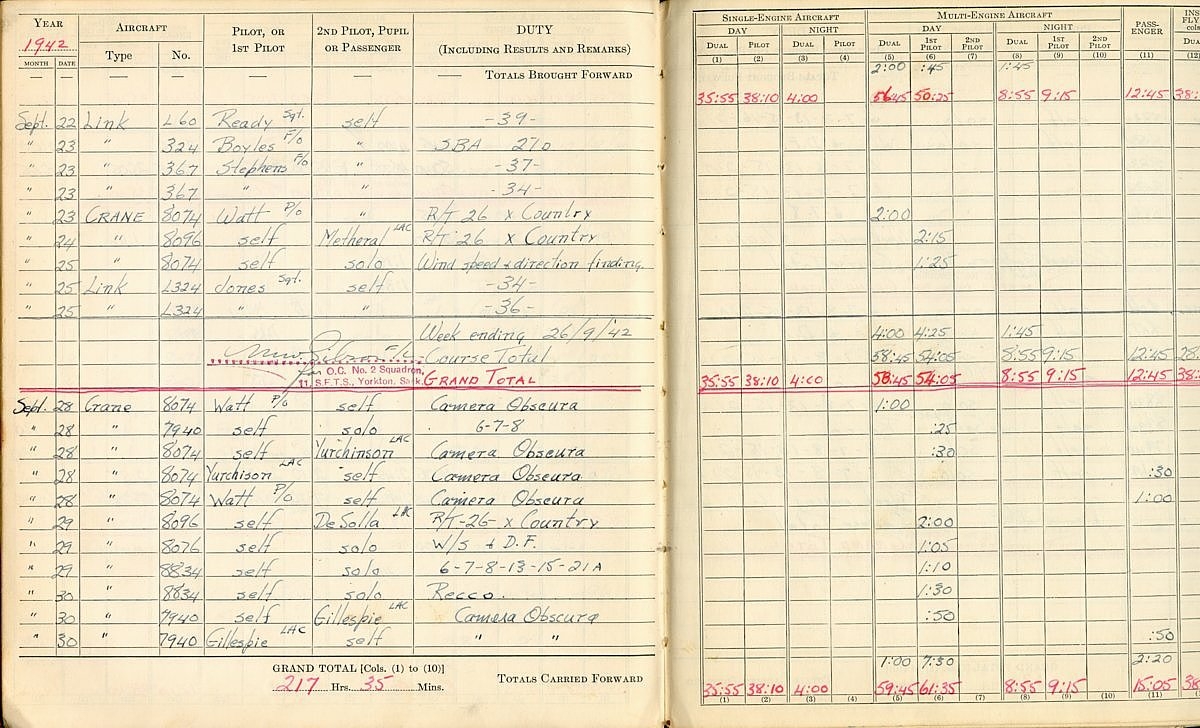 YEAR AIRCRAFT PILOT, OR 2ND PILOT, PUPIL DUTY SINGLE-ENGINE AIRCRAFT MULTI-ENGINE AIRCRAFT PASS- INS
1942 1ST PILOT OR PASSENGER (INCLUDING RESULTS AND REMARKS) DAY NIGHT DAY NIGHT ENGER FLY
MONTH DATE Type No. DUAL PILOT DUAL PILOT DUAL 1ST PILOT 2ND PILOT DUAL 1ST PILOT 2ND PILOT cols. DUAL
(1) (2) (3) (4) (5) (6) (7) (8) (9) (10) (11) (12)
— — — — — — — TOTALS BROUGHT FORWARD 2:00 :45 1:45
35:55 38:10 4:00 56:45 50:25 8:55 9:15 12:45 38:
Sept. 22 Link L60 Ready Sgt. self -39-
" 23 " 324 Boyles F/O " SBA 270
" 23 " 367 Stephens F/O " -37-
" 23 " 367 " " -34-
" 23 CRANE 8074 Watt P/O " R/T 26 x Country 2:00
" 24 " 8096 self Metheral LAC R/T 26 x Country 2:15
" 25 " 8074 self solo Wind speed & direction finding. 1:25
" 25 Link L324 Jones Sgt. self -34-
" 25 " L324 " " -36-
Week ending 26/9/42 4:00 4:25 1:45
F/L Course Total 58:45 54:05 8:55 9:15 12:45 38:
for O.C. No. 2 Squadron,
11, S.F.T.S., Yorkton, Sask. GRAND TOTAL 35:55 38:10 4:00 58:45 54:05 8:55 9:15 12:45 38:
Sept. 28 Crane 8074 Watt P/O self Camera Obscura 1:00
" 28 " 7940 self solo 6-7-8 :25
" 28 " 8074 self Yurchinson LAC Camera Obscura :30
" 28 " 8074 Yurchison LAC self Camera Obscura :30
" 28 " 8074 Watt P/O self Camera Obscura 1:00
" 29 " 8096 self DeSolla LAC R/T-26- x Country 2:00
" 29 " 8076 self solo W/S & D.F. 1:05
" 29 " 8834 self solo 6-7-8-13-15-21A 1:10
" 30 " 8834 self solo Recco. 1:30
" 30 " 7940 self Gillespie LAC Camera Obscura :50
" 30 " 7940 Gillespie LAC self " " :50
1:00 7:30 2:20
GRAND TOTAL [Cols. (1) to (10)]
217 Hrs. 35 Mins. TOTALS CARRIED FORWARD 35:55 38:10 4:00 59:45 61:35 8:55 9:15 15:05 38
(1) (2) (3) (4) (5) (6) (7) (8) (9) (10) (11)